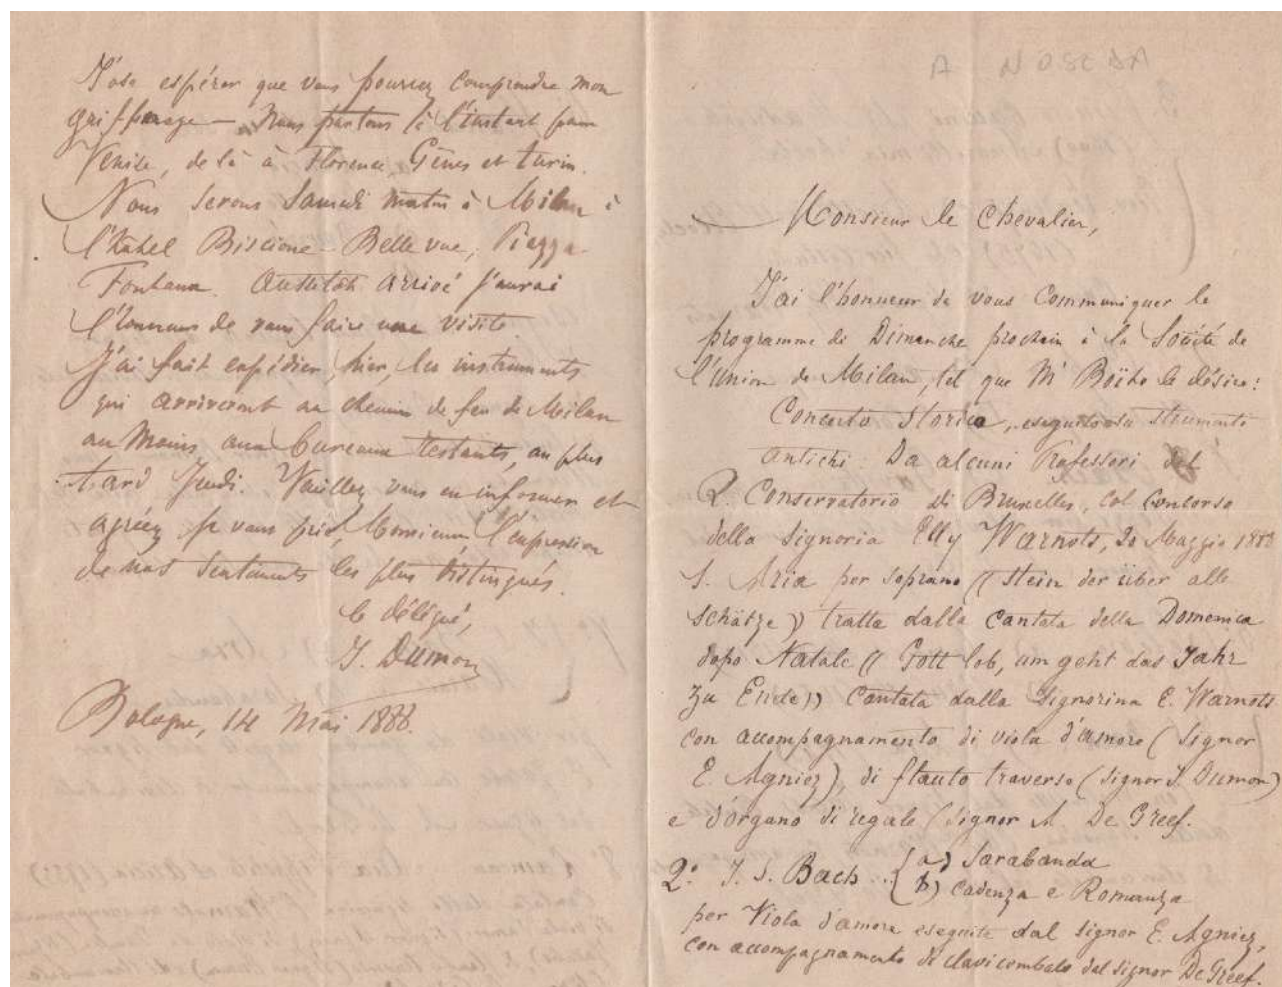 J'ose espérer que vous pourrez comprendre mon
griffonage — Nous partons à l'instant pour
Venise, de là à Florence, Gênes et Turin.
Nous serons Samedi matin à Milan à
l'hôtel Biscione-Bellevue, Piazza
Fontana. Aussitôt arrivé j'aurai
l'honneur de vous faire une visite
J'ai fait expédier, hier, les instruments
qui arriveront au chemin de fer de Milan
au moins aux bureaux restants, au plus
tard Jeudi. Veuillez vous en informer et
agréez je vous prie, Monsieur, l'expression
de nos sentiments les plus distingués.
le délégué,
J. Dumon
Bologne, 14 Mai 1888.
A NOSEDA
Monsieur le Chevalier,
J'ai l'honneur de vous communiquer le
programme di Dimanche prochain à la Société de
l'Union de Milan, tel que Mr Boïto le désire:
Concerto Storico, eseguito su strumenti
antichi: Da alcuni Professori del
R. Conservatorio di Bruxelles, col concorso
della Signoria Elly Warnots, 20 Maggio 1888
1. Aria per soprano (( Stein der über alle
schätze )) tratta dalla cantata della Domenica
dopo Natale (( Gott lob, um geht das Jahr
zu Ende )) cantata dalla Signorina E. Warnots
con accompagnamento di viola d'amore (Signor
E. Agniez), di flauto traverso (Signor J. Dumon)
e d'organo di regale (Signor A. De Greef.
2º J. S. Bach .. { a) Sarabanda
b) Cadenza e Romanza
per Viola d'amore eseguite dal Signor E. Agniez,
con accompagnamento di clavicembalo dal Signor De Greef.